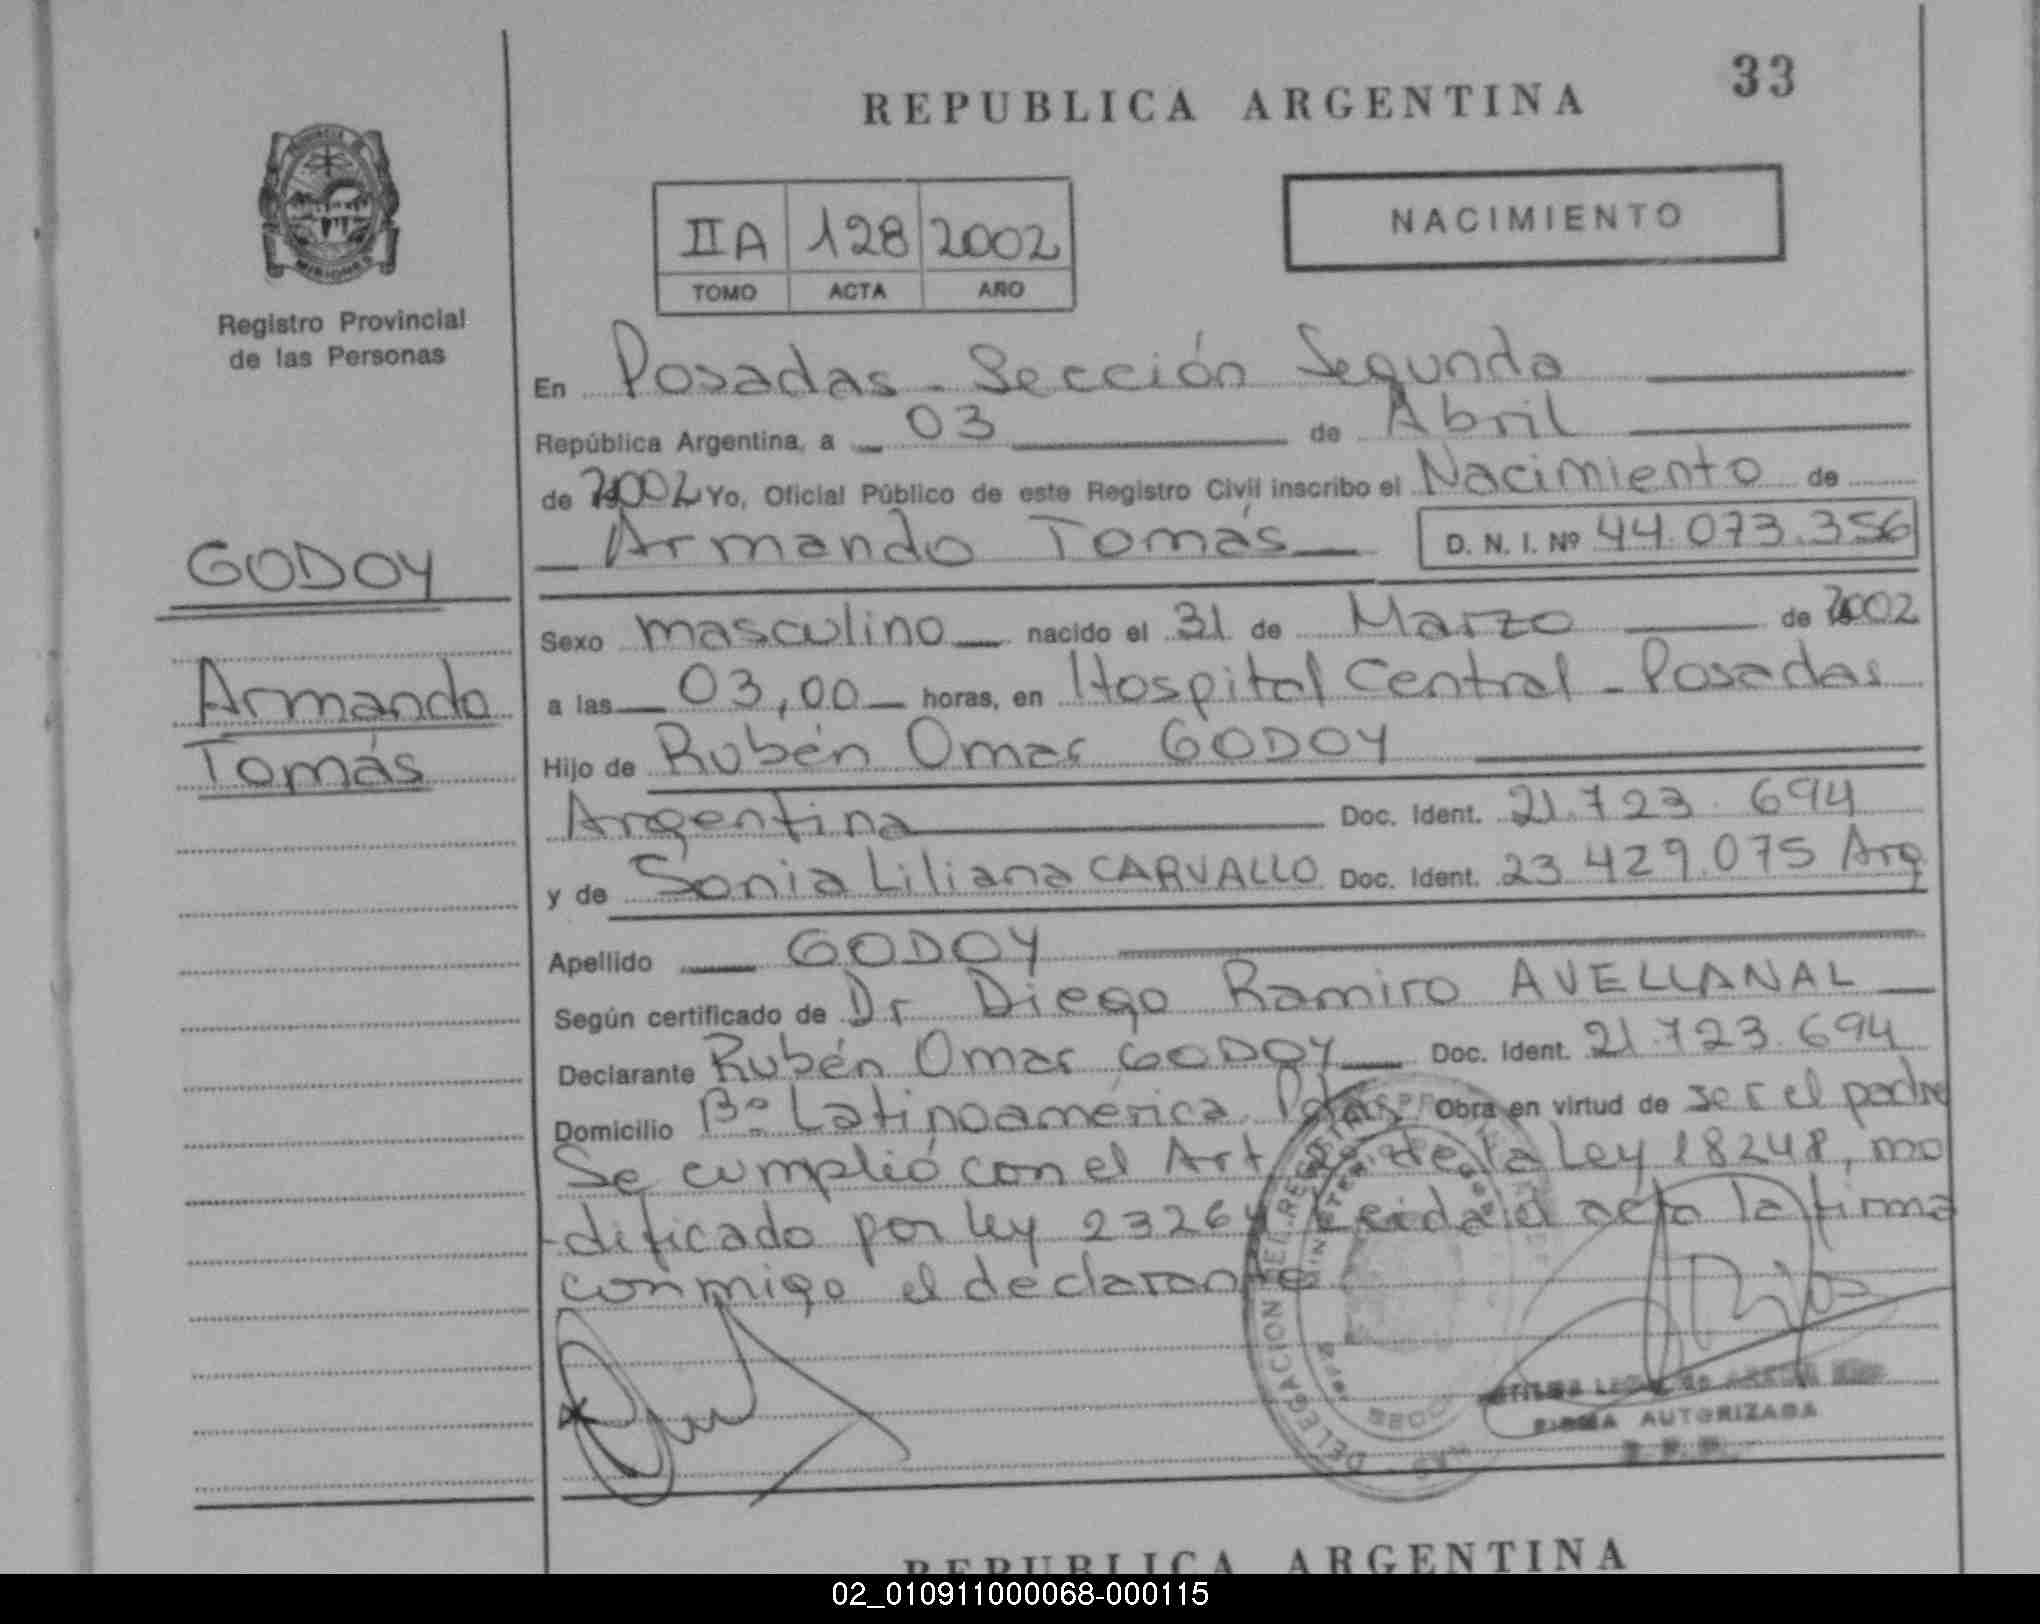 33
REPUBLICA ARGENTINA
NACIMIENTO
IIA 128 2002
TOMO ACTA AÑO
PROVINCIA DE
MISIONES
Registro Provincial
de las Personas
GODOY
Armando
Tomás
En Posadas - Sección Segunda
República Argentina, a 03 de Abril
de 2002 Yo, Oficial Público de este Registro Civil inscribo el Nacimiento de
Armando Tomás D. N. I. Nº 44.073.356
Sexo masculino nacido el 31 de Marzo de 2002
a las 03,00 horas, en Hospital Central - Posadas
Hijo de Rubén Omar GODOY
Argentina Doc. Ident. 21.723.694
y de Sonia Liliana CARVALLO Doc. Ident. 23.429.075 Arg
Apellido GODOY
Según certificado de Dr Diego Ramiro AVELLANAL
Declarante Rubén Omar GODOY Doc. Ident. 21.723.694
Domicilio Bº Latinoamérica Pdas Obra en virtud de ser el padre
Se cumplió con el Art de la Ley 18248, mo
-dificado por ley 23264 Leida el acta la firma
conmigo el declarante
DELEGACION DEL REGISTRO
FIRMA AUTORIZADA
R. P. P.
REPUBLICA ARGENTINA
02_010911000068-000115